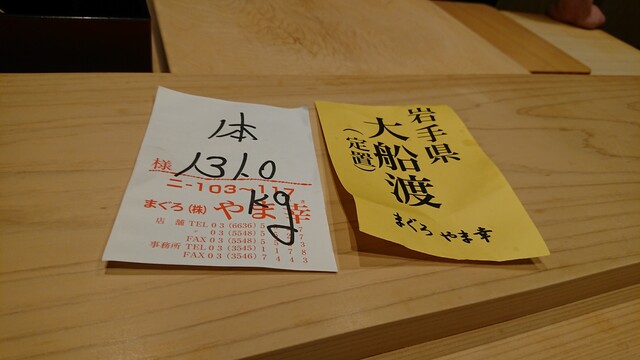 1本
様 131.0
kg
ニ-103~117
まぐろ(株)やま幸
店舗 TEL 03 (6636) 5
〃 03 (5548) 5
FAX 03 (5548) 5
事務所 TEL 03 (3545) 1178
FAX 03 (3546) 7443
岩手県
大船渡
(定置)
まぐろ やま幸